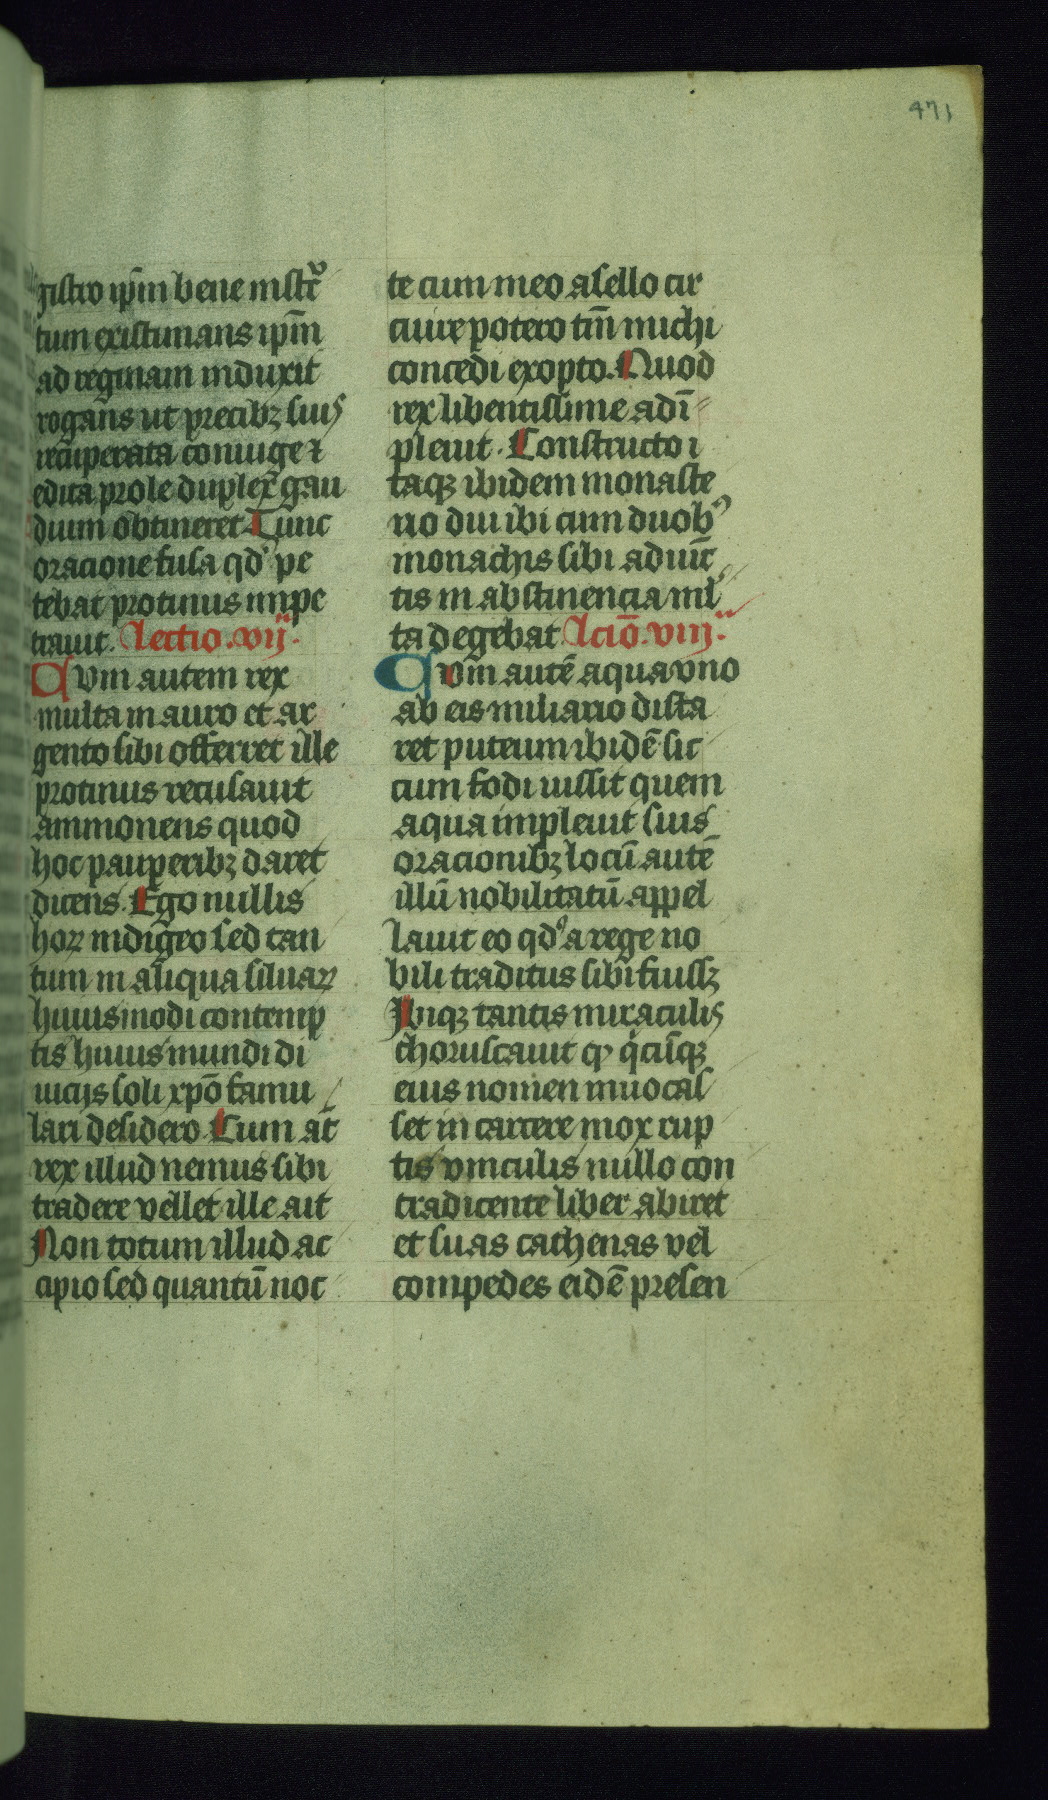 471
gistro ip̄m bene instrͦc
tum existimans ip̄m
ad reginam induxit
rogans ut precibꝫ suis
recuperata coniuge ⁊
edita prole duplex gau
dium obtineret Tunc
oracione fusa qd̓ pe
tebat protinus impe
trauit. Lectio .vij.
Cvm autem rex
multa in auro et ar
gento sibi offerret ille
protinus recusauit
ammonens quod
hoc pauperibꝫ daret
dicens. Ego nullis
hoꝝ indigeo sed tan
tum in aliqua siluaꝝ
huiusmodi contemp
tis huius mundi di
uicijs soli xp̄o famu
lari desidero. Cum at̄
rex illud nemus sibi
tradere vellet ille ait
Non totum illud ac
cipio sed quantū noc
te cum meo asello cir
cuire potero tm̄ michi
concedi exopto. Quod
rex libentissime adī
pleuit. Constructo i
taqꝫ ibidem monaste
rio diu ibi cum duobꝰ
monachis sibi adiūc
tis in abstinencia ml̓
ta degebat Lcīo .viij.
Cvm autē aqua vno
ab eis miliario dista
ret puteum ibidē sic
cum fodi iussit quem
aqua impleuit suis
oracionibꝫ locū autē
illū nobilitatū appel
lauit eo qd̓ a rege no
bili traditus sibi fuissꝫ
Ibiqꝫ tantis miraculis
choruscauit ꝙ q̓cūqꝫ
eius nomen inuocas
set in carcere mox rup
tis vinculis nullo con
tradicente liber abiret
et suas cathenas vel
compedes eidē presen